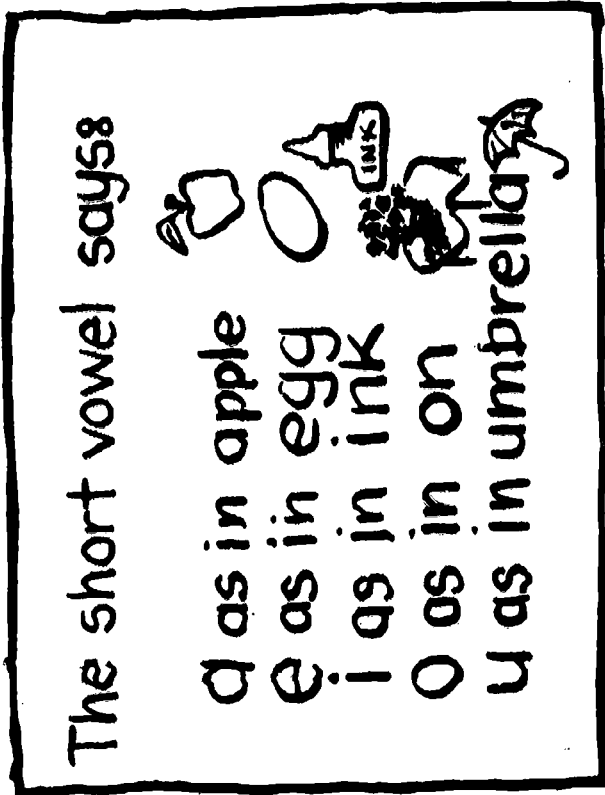 The short vowel says:
a as in apple
e as in egg
i as in ink
INK
o as in on
u as in umbrella